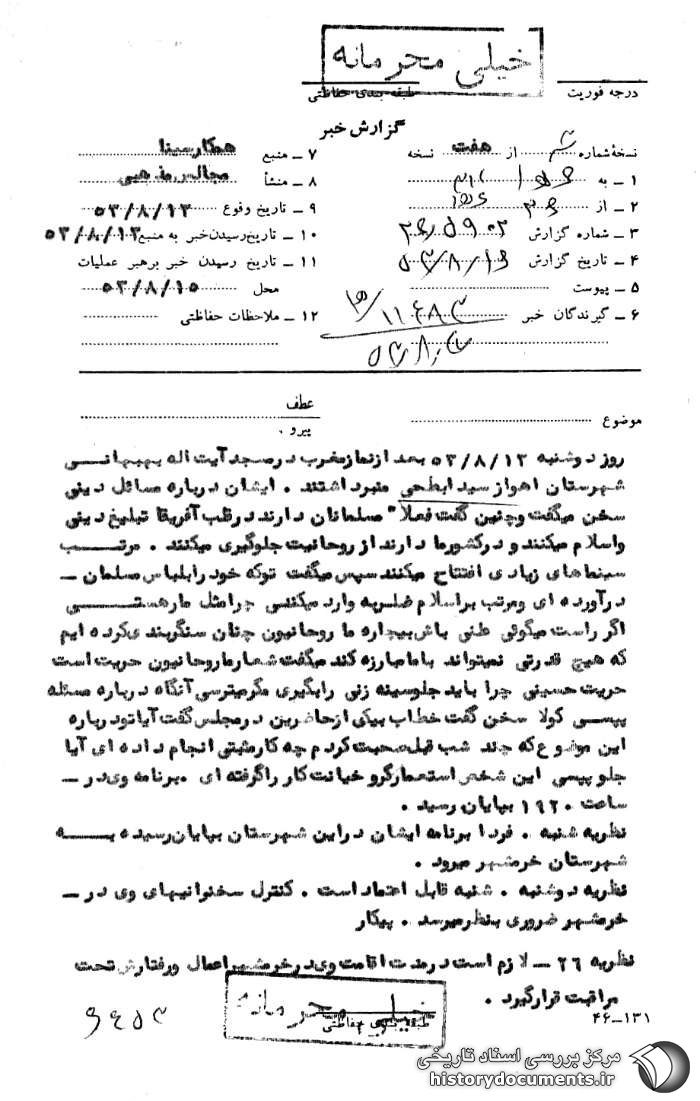 خیلی محرمانه
درجه فوریت
طبقه بندی حفاظتی
گزارش خبر
نسخهٔ شماره از هفت نسخه
۷ – منبع همکار سینا
۱ – به ۳۱۲
۸ – منشأ مجالس مذهبی
۲ – از
۹ – تاریخ وقوع ۵۳/۸/۱۳
۳ – شماره گزارش
۱۰ – تاریخ رسیدن خبر به منبع ۵۳/۸/۱۳
۴ – تاریخ گزارش
۱۱ – تاریخ رسیدن خبر برهبر عملیات
۵ – پیوست
محل ۵۳/۸/۱۵
۶ – گیرندگان خبر
۱۲ – ملاحظات حفاظتی
موضوع
عطف
پیرو
روز دوشنبه ۵۳/۸/۱۳ بعد از نماز مغرب در مسجد آیت اله بهبهانی
شهرستان اهواز سید ابطحی منبر داشتند . ایشان درباره مسائل دینی
سخن میگفت و چنین گفت فعلا" مسلمانان دارند در قلب آفریقا تبلیغ دینی
و اسلام میکنند و در کشور ما دارند از روحانیت جلوگیری میکنند . مرتب
سینماهای زیادی افتتاح میکنند سپس میگفت توکه خود را بلباس مسلمان –
درآورده ای و مرتب بر اسلام ضربه وارد میکنی چرا مثل مار هستی
اگر راست میگوئی علنی باش بیچاره ما روحانیون چنان سنگربندی کرده ایم
که هیچ قدرتی نمیتواند با ما مبارزه کند میگفت شعار ما روحانیون حریت است
حریت حسینی چرا باید جلو سینه زنی را بگیری مگر میترسی آنگاه درباره مسئله
پپسی کولا سخن گفت خطاب بیکی از حاضرین در مجلس گفت آیا تو درباره
این موضوع که چند شب قبل صحبت کردم چه کار مثبتی انجام داده ای آیا
جلو پپسی این شخص استعمارگر و خیانت کار را گرفته ای . برنامه وی در –
ساعت ۱۹۲۰ بپایان رسید .
نظریه شنبه . فردا برنامه ایشان در این شهرستان بپایان رسیده به
شهرستان خرمشهر میرود .
نظریه دوشنبه . شنبه قابل اعتماد است . کنترل سخنرانیهای وی در –
خرمشهر ضروری بنظر میرسد . پیکار
نظریه ۲۶ – لازم است در مدت اقامت وی در خرمشهر اعمال و رفتارش تحت
مراقبت قرار گیرد .
خیلی محرمانه
طبقه بندی حفاظتی
۴۶–۱۳۱
مرکز بررسی اسناد تاریخی
historydocuments.ir